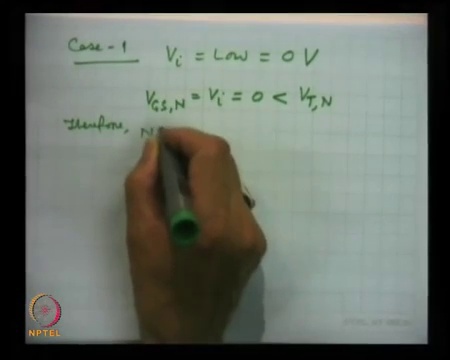 Case-1 Vi = Low = 0 V
VGS,N = Vi = 0 < VT,N
Therefore, N
NPTEL